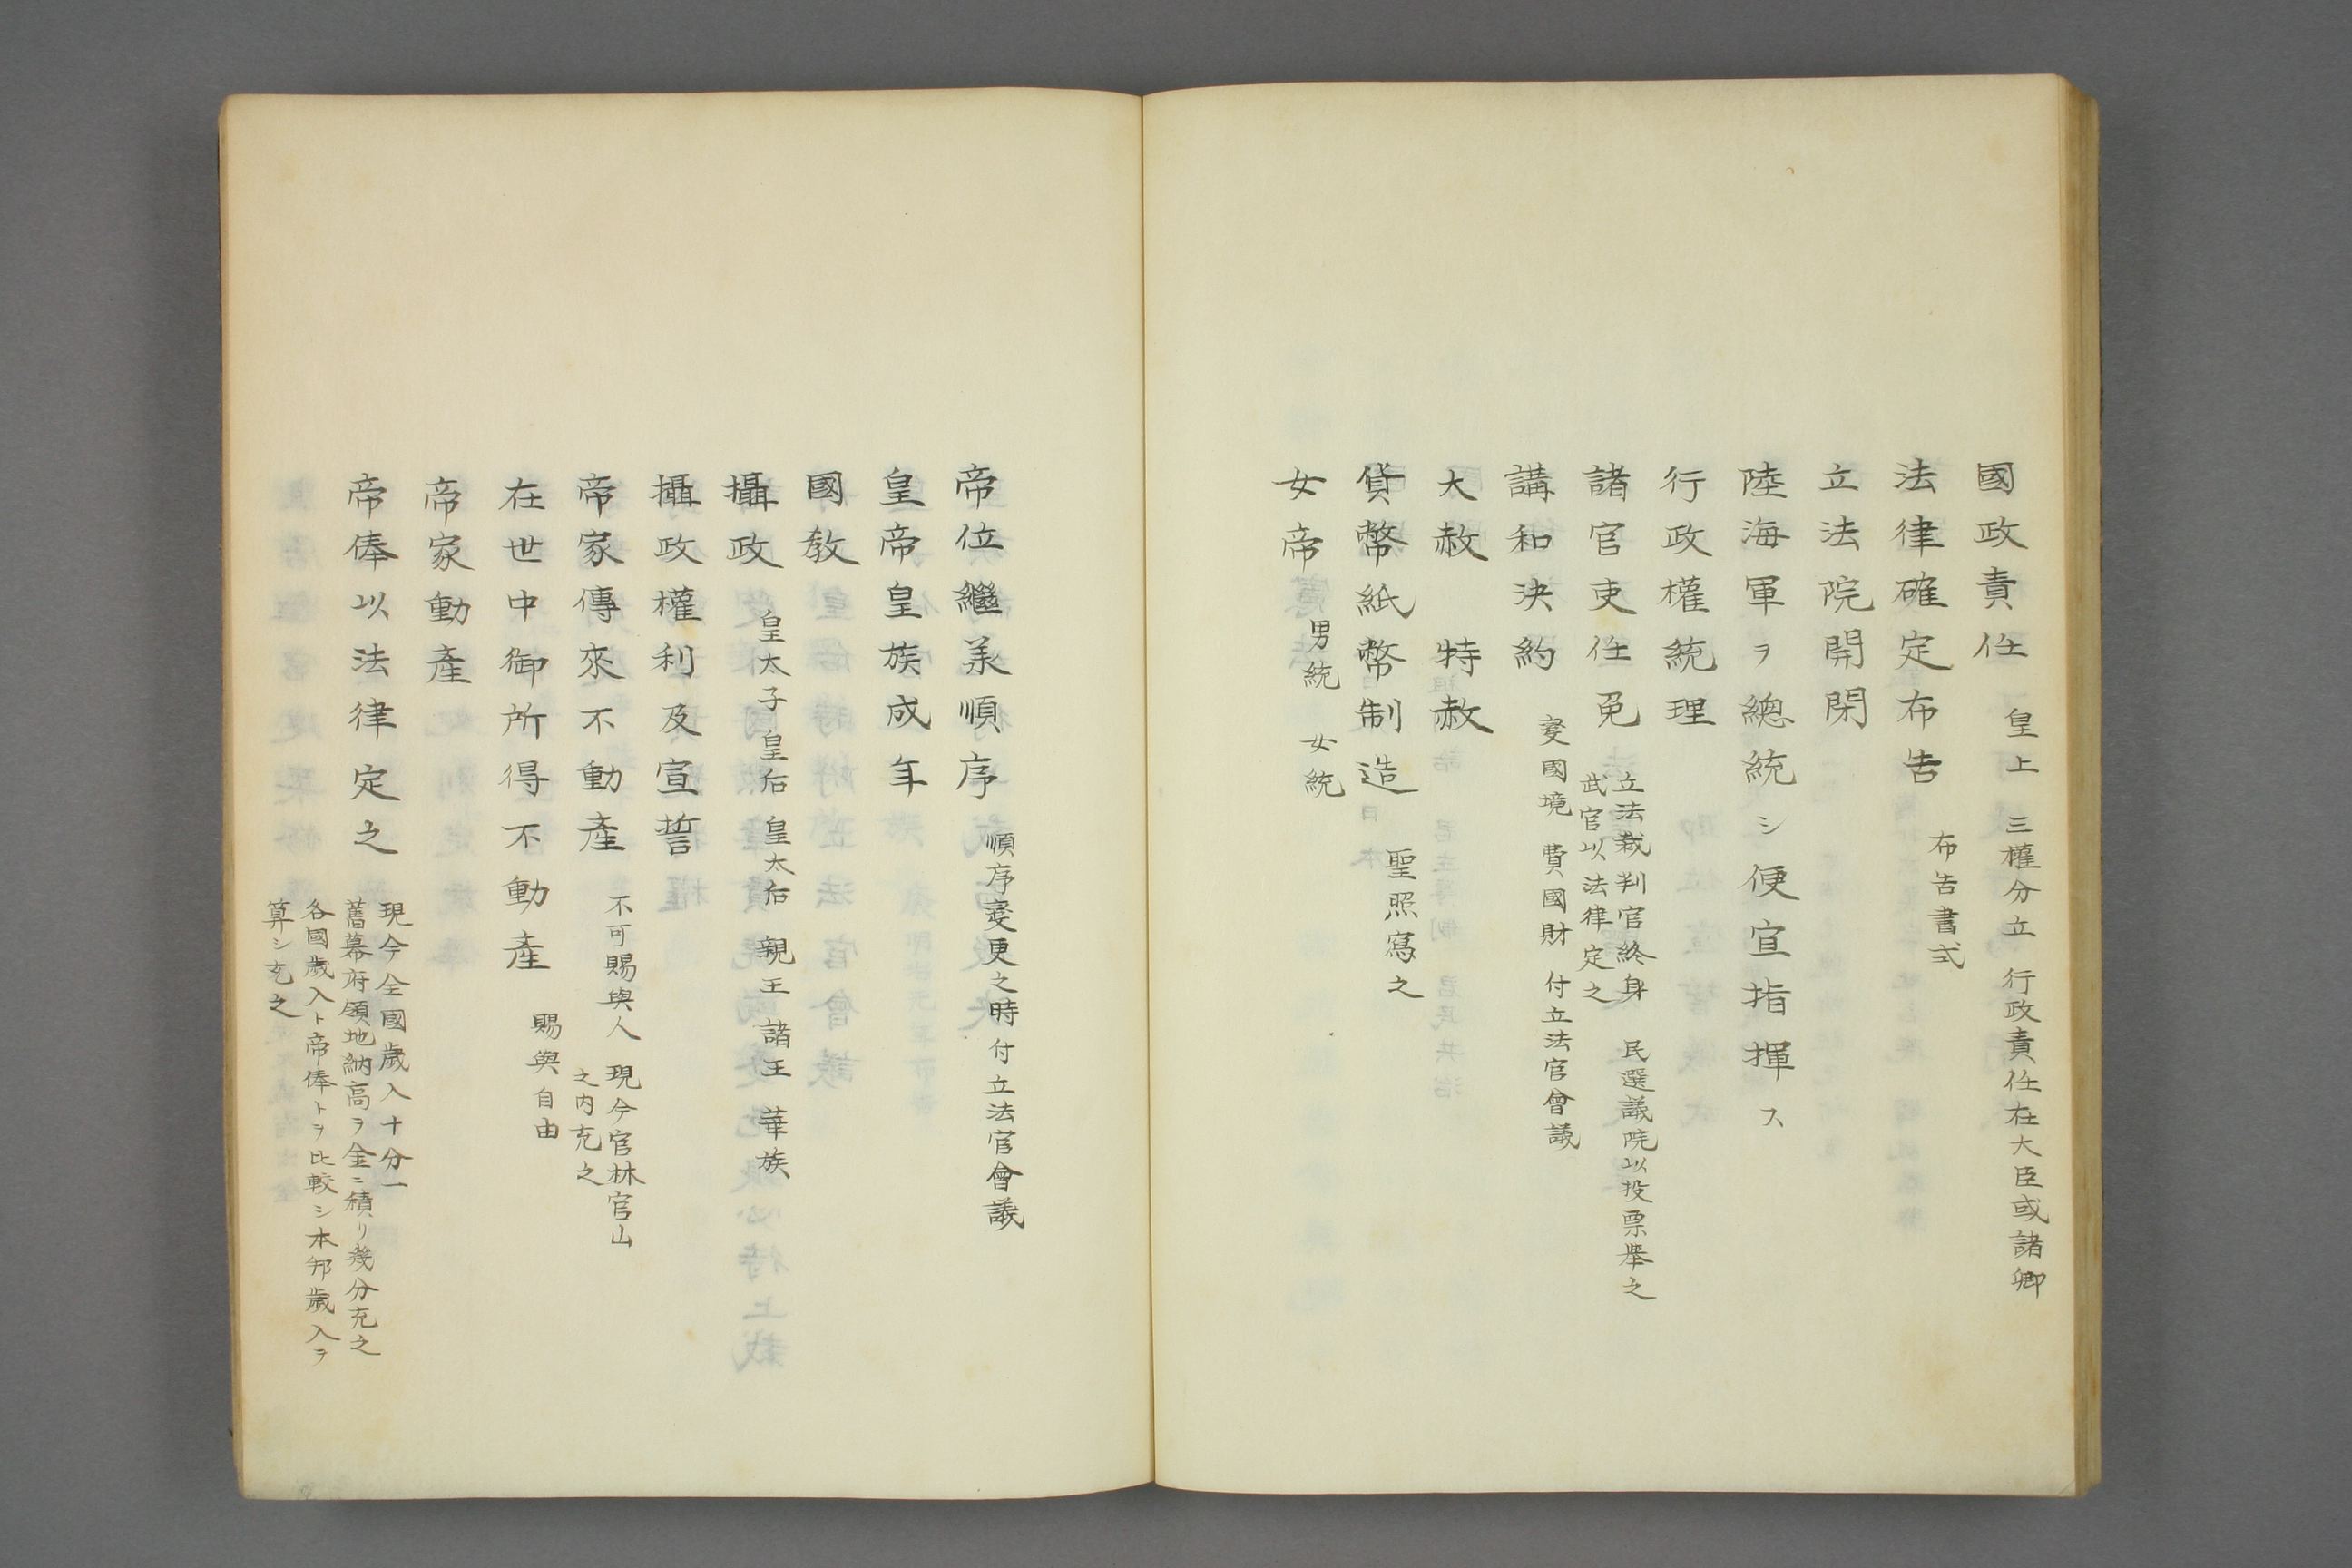 國政責任　皇上　三權分立　行政責任在大臣或諸卿
法律確定布告　布告書式
立法院開閉
陸海軍ヲ總統シ便宜指揮ス
行政權統理
諸官吏任免　立法裁判官終身　民選議院以投票擧之
武官以法律定之
講和決約　変國境　費國財　付立法官會議
大赦　特赦
貨幣紙幣制造　聖照寫之
女帝　男統　女統
帝位繼承順序　順序変更之時付立法官會議
皇帝皇族成年
國教
攝政　皇太子　皇后　皇太后　親王　諸王　華族
攝政權利及宣誓
帝家傳來不動產　不可賜與人　現今官林官山
之内充之
在世中御所得不動產　賜與自由
帝家動產
帝俸以法律定之　現今全國歲入十分一
舊幕府領地納高ヲ金ニ積リ幾分充之
各國歲入ト帝俸トヲ比較シ本邦歲入ヲ
算シ充之